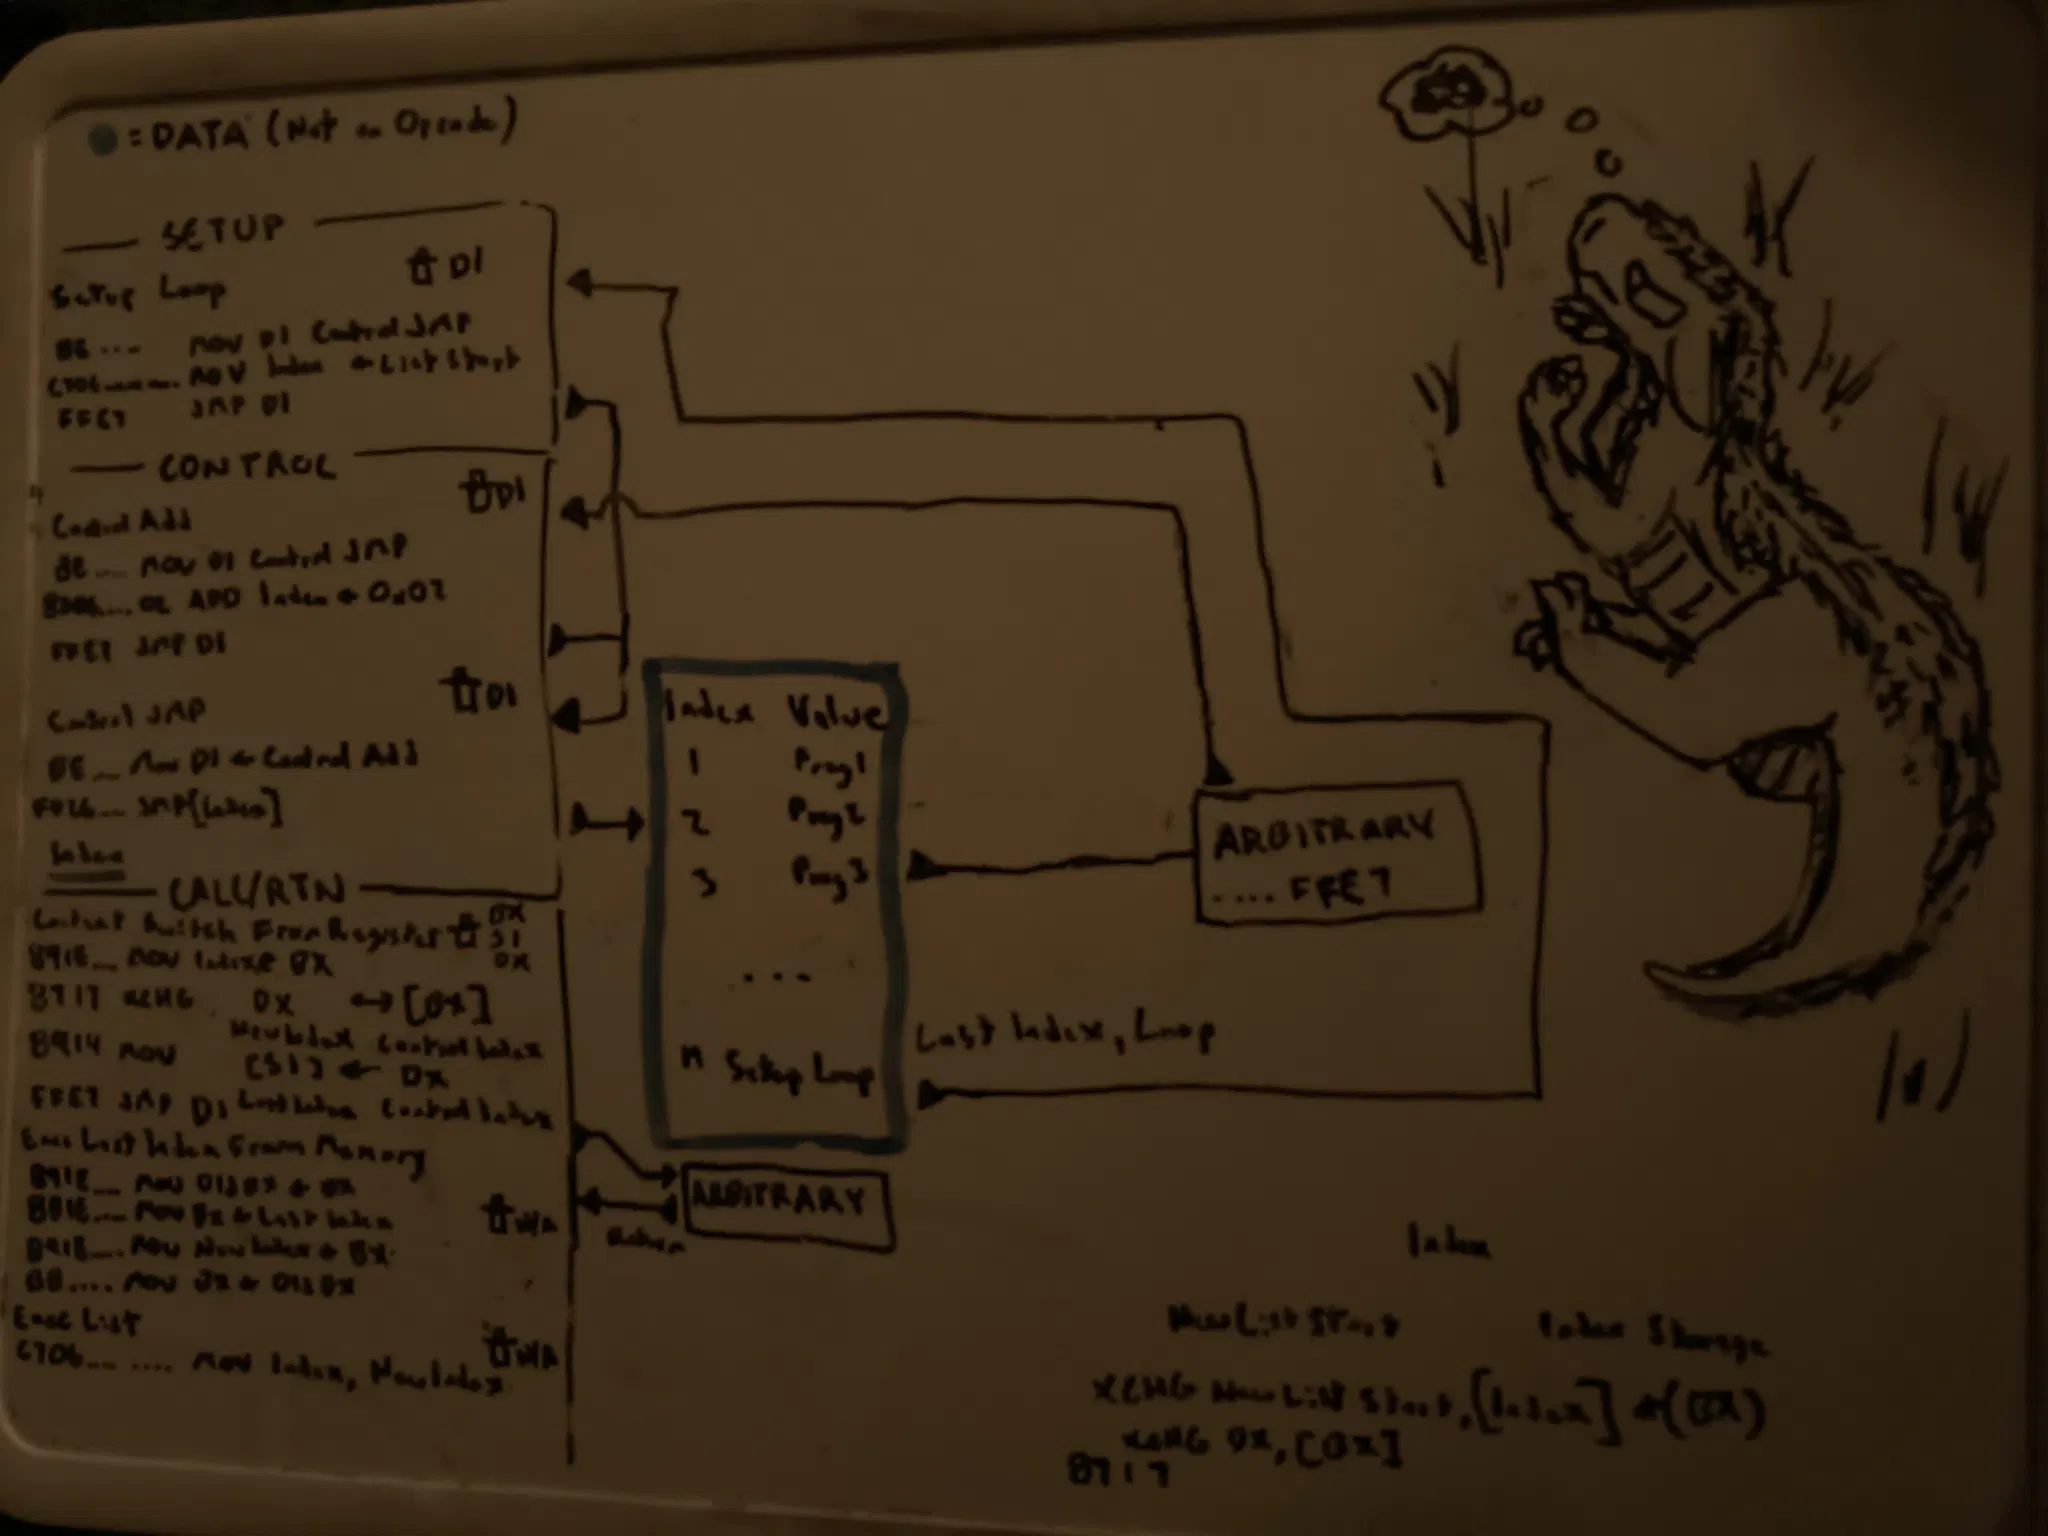 = DATA (Not an Opcode)
SETUP
Setup Loop DI
BE .... MOV DI Control JMP
C706........ MOV Index ← List Start
FFE7 JMP DI
CONTROL
Control Add DI
BE .... MOV DI Control JMP
8306.... 02 ADD Index ← 0x02
FFE7 JMP DI
Control JMP DI
BE .... Mov DI ← Control Add
FF26.... JMP [Index]
Index
CALL/RTN
Context Switch From Register BX
SI
DX
891E.... MOV Index BX
8717 XCHG DX ↔ [BX]
New Index Control Index
8914 MOV [SI] ← DX
FFE7 JMP DI Last Index Control Index
Exec Last Index From Memory
891E.... MOV BX
8B1E.... MOV BX ← Last Index N/A
891E.... MOV New Index ← BX
BB.... MOV BX ←
Exec List N/A
C706.... .... MOV Index, New Index
Index Value
1 Prog1
2 Prog2
3 Prog3
...
n Setup Loop
Last Index, Loop
ARBITRARY
.... FFE7
ARBITRARY
Return
Index
New List Start Index Storage
XCHG New List Start, [Index] ← (BX)
XCHG DX, [BX]
8717